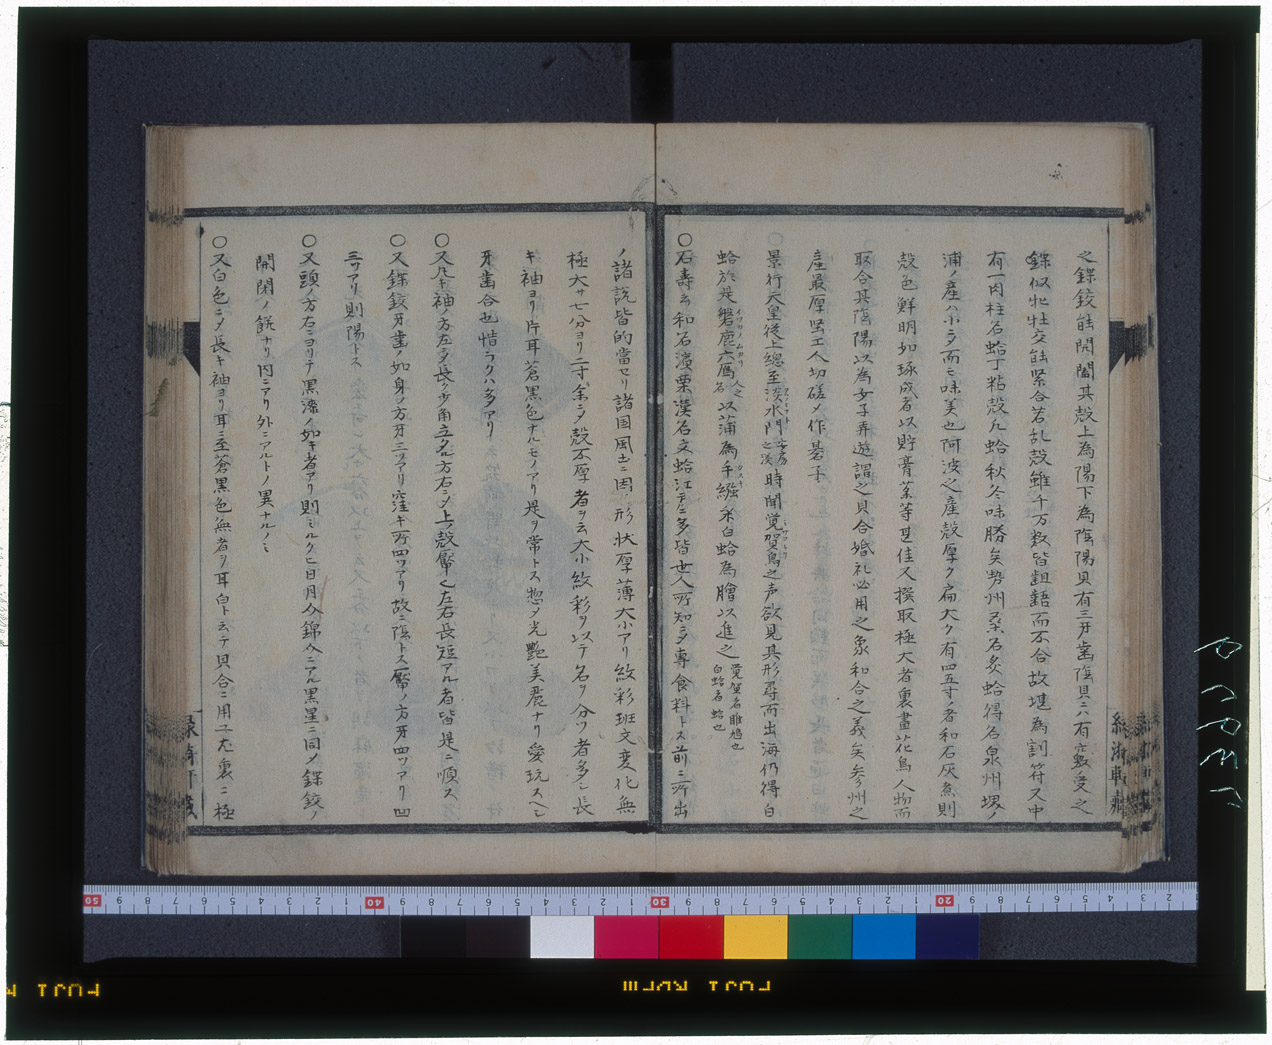 之鏍鉸能開闔其殻上為陽下為陰陽貝有三牙歯陰貝ニハ有竅受之
鏍似牝牡交能緊合若乱殻雖千万数皆齟齬而不合故堪為割符又中
有一肉柱名蛤丁粘殻凡蛤秋冬味勝矣勢州桑名炙蛤得名泉州堺ノ
浦ノ産ハ小ニ〆而モ味美也阿波之産殻厚ク扁大ケ有四五寸ノ者和石灰魚則
殻色鮮明如琢成者以貯膏薬等甚佳又撰取極大者裏畫花鳥人物而
取合其陰陽以為女子弄遊謂之貝合婚礼必用之象和合之義矣参州之
産最厚堅工人切磋〆作碁子
景行天皇従上總至淡水門安房之湊時聞覚賀鳥之声欲見其形尋而出海仍得白
蛤於是磐鹿六鴈人之名以蒲為手繦采白蛤為膾以進之覚賀名雎鳩也白蛤者蛤也
〇石壽云和石濱栗漢名文蛤江戸ニ多皆世人所知ニ〆専食料トス前ニ所出
ノ諸説皆的當セリ諸国風土ニ因テ形状厚薄大小アリ紋彩班文変化無
極大サ七八分ヨリ二寸余ニ〆殻不厚者ヲ云大小紋彩ヲ以テ名ヲ分ツ者多シ長
キ袖ヨリ片耳蒼黒色ナルモノアリ是ヲ常トス惣〆光艶美麗ナリ愛玩スヘシ
牙歯合也惜ラクハ多アリ
〇又凡キ袖ノ方左ニ〆長ク少角立タル方右ニ〆上ノ殻靨ヘ左右長短アル者皆是ニ順ス
〇又鏍鉸牙歯ノ如身ノ方牙三ツアリ窪キ所四ツアリ故ニ陰トス靨ノ方牙四ツアリ凹
三ツアリ則陽トス
〇又頭ノ方右ニヨリテ黒漆ノ如キ者アリ則ミルクヒ日月介錦介ニアル黒星ニ同〆鏍鉸ノ
開閉ノ餝ナリ内ニアリ外ニアルトノ異ナルノミ
〇又白色ニ〆長キ袖ヨリ耳ニ至蒼黒色無者ヲ耳白ト云テ貝合ニ用不尤裏ニ極